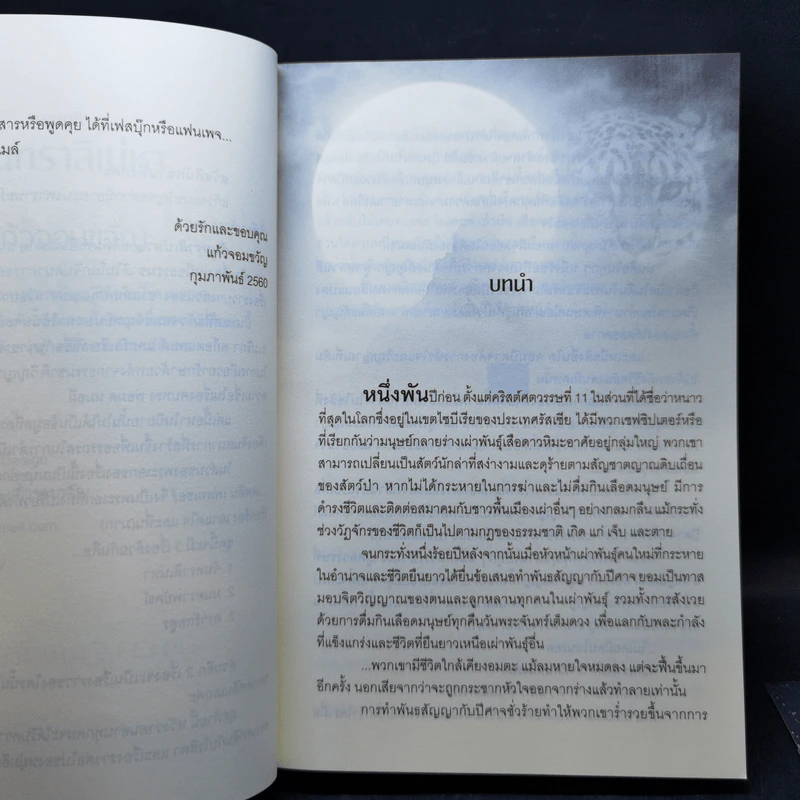 สารหรือพูดคุย ได้ที่เฟสบุ๊กหรือแฟนเพจ...
เมล์
ด้วยรักและขอบคุณ
แก้วจอมขวัญ
กุมภาพันธ์ 2560
บทนำ
หนึ่งพันปีก่อน ตั้งแต่คริสต์ศตวรรษที่ 11 ในส่วนที่ได้ชื่อว่าหนาว
ที่สุดในโลกซึ่งอยู่ในเขตไซบีเรียของประเทศรัสเซีย ได้มีพวกเชฟชิปเตอร์หรือ
ที่เรียกกันว่ามนุษย์กลายร่างเผ่าพันธุ์เสือดาวหิมะอาศัยอยู่กลุ่มใหญ่ พวกเขา
สามารถเปลี่ยนเป็นสัตว์นักล่าที่สง่างามและดุร้ายตามสัญชาตญาณดิบเถื่อน
ของสัตว์ป่า หากไม่ได้กระหายในการฆ่าและไม่ดื่มกินเลือดมนุษย์ มีการ
ดำรงชีวิตและติดต่อสมาคมกับชาวพื้นเมืองเผ่าอื่นๆ อย่างกลมกลืน แม้กระทั่ง
ช่วงวัฏจักรของชีวิตก็เป็นไปตามกฎของธรรมชาติ เกิด แก่ เจ็บ และตาย
จนกระทั่งหนึ่งร้อยปีหลังจากนั้นเมื่อหัวหน้าเผ่าพันธุ์คนใหม่ที่กระหาย
ในอำนาจและชีวิตยืนยาวได้ยื่นข้อเสนอทำพันธสัญญากับปีศาจ ยอมเป็นทาส
มอบจิตวิญญาณของตนและลูกหลานทุกคนในเผ่าพันธุ์ รวมทั้งการสังเวย
ด้วยการดื่มกินเลือดมนุษย์ทุกคืนวันพระจันทร์เต็มดวง เพื่อแลกกับพละกำลัง
ที่แข็งแกร่งและชีวิตที่ยืนยาวเหนือเผ่าพันธุ์อื่น
...พวกเขามีชีวิตใกล้เคียงอมตะ แม้ลมหายใจหมดลง แต่จะฟื้นขึ้นมา
อีกครั้ง นอกเสียจากว่าจะถูกกระชากหัวใจออกจากร่างแล้วทำลายเท่านั้น
การทำพันธสัญญากับปีศาจชั่วร้ายทำให้พวกเขาร่ำรวยขึ้นจากการ